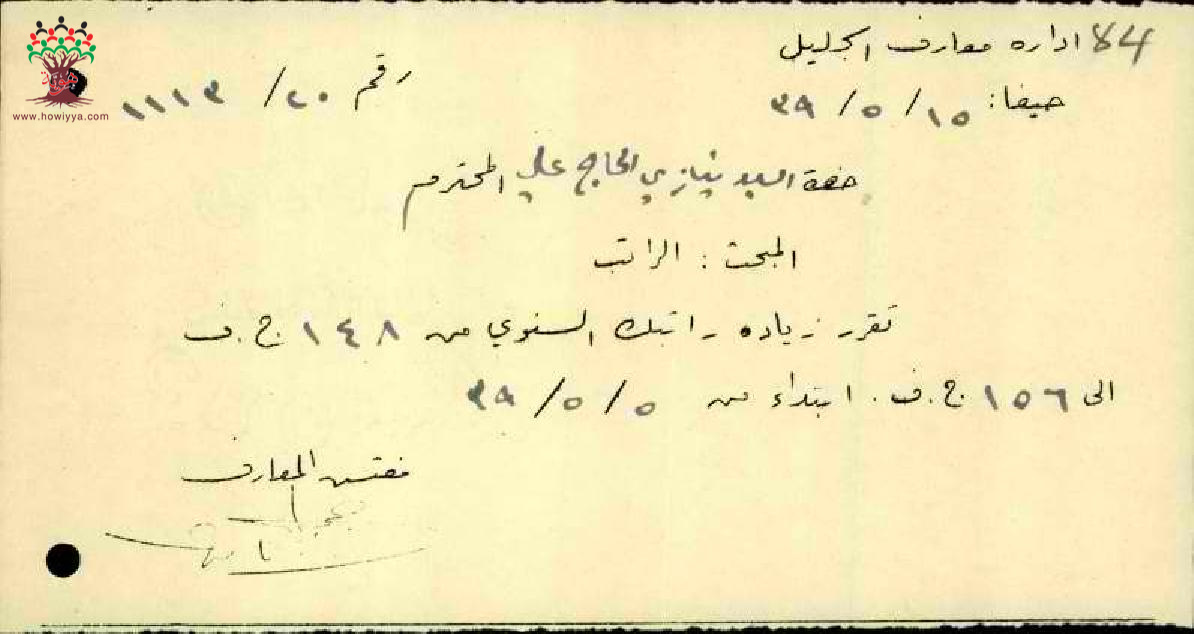 84 اداره معارف الجليل
حيفا: ١٥/ ٥/ ٣٩
رقم ٢٠/ ١١١٣
حضرة السيد نيازي الحاج علي المحترم
المبحث : الراتب
تقرر زياده راتبك السنوي من ١٤٨ ج.ف
الى ١٥٦ ج.ف. ابتداء من ٥/ ٥/ ٣٩
مفتش المعارف
هوية
www.howiyya.com